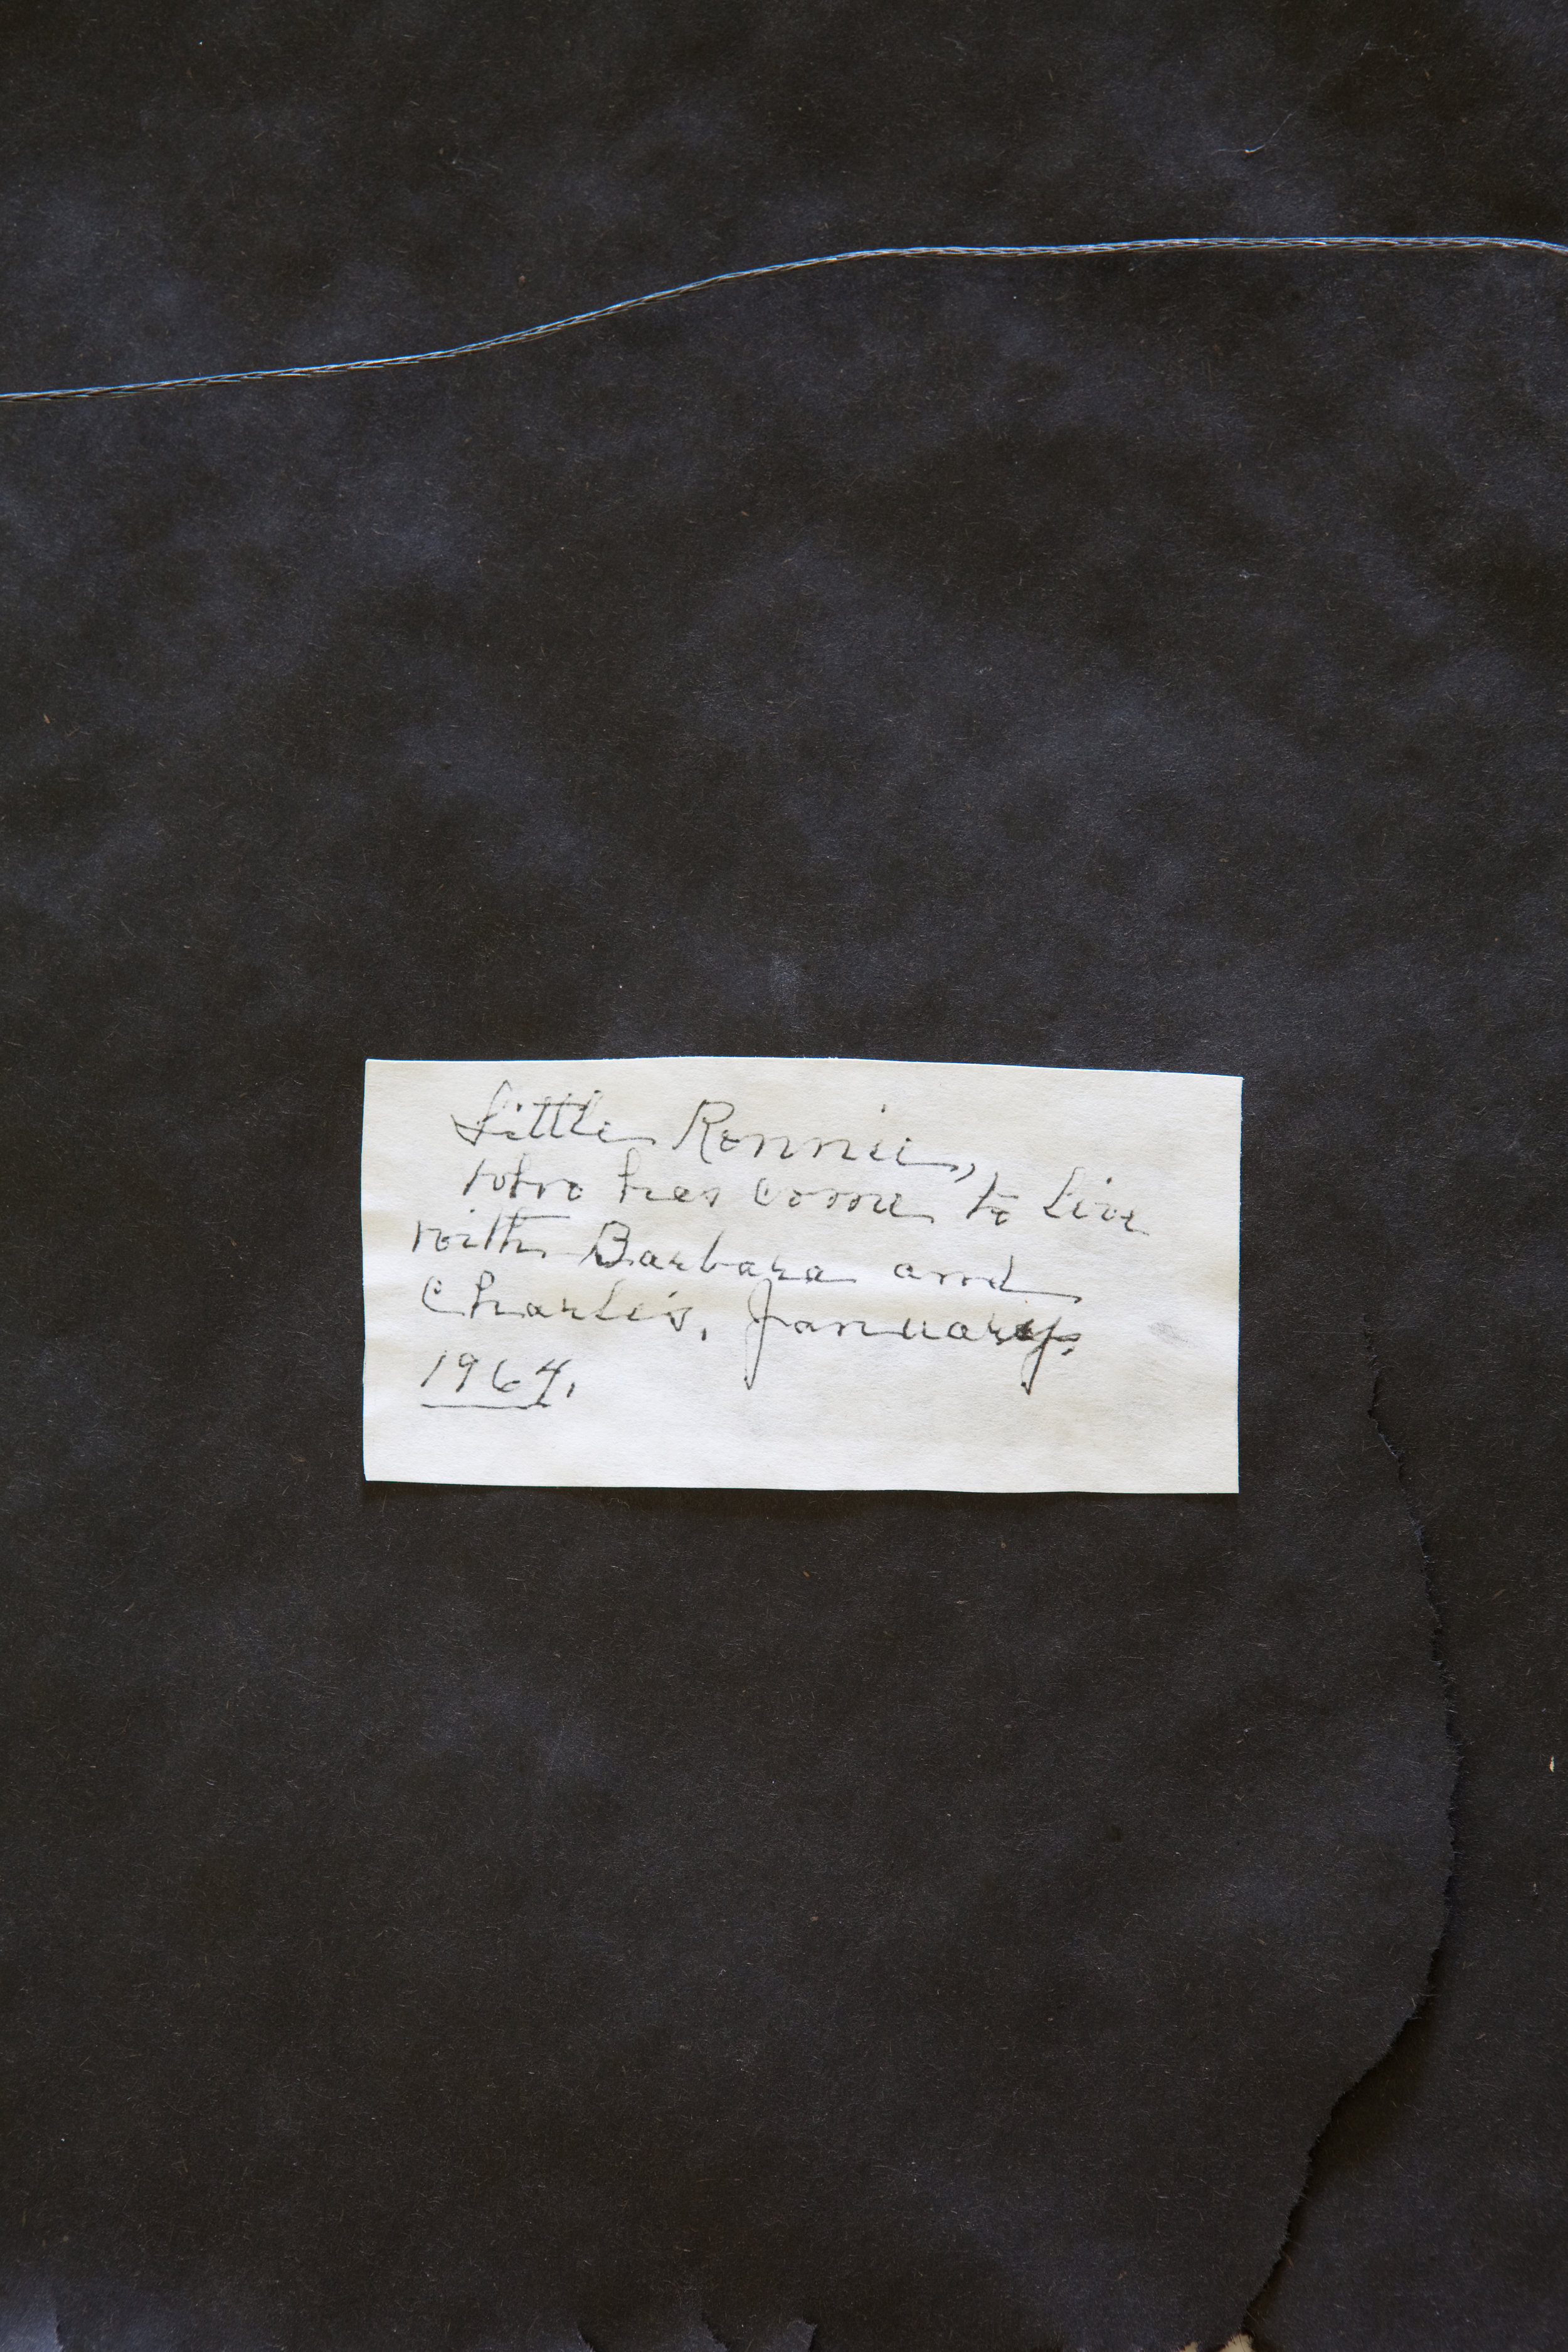 Little Ronnie,
who has come to live
with Barbara and
Charles, January,
1964.